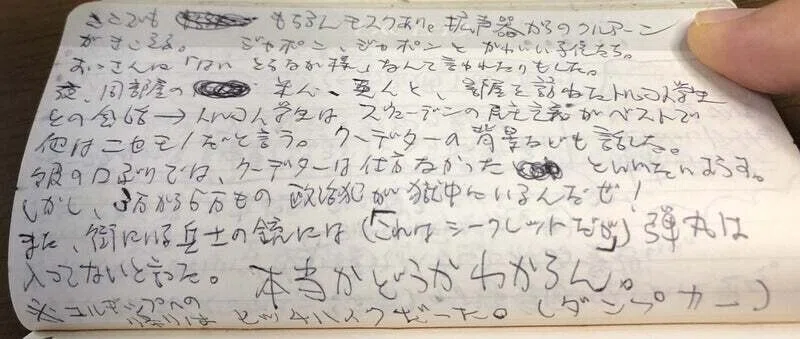 ここでも もちろんモスクあり。拡声器からのコルアーン
がきこえる。 ジャポン、ジャポンと かわいい子供たち。
おっさんは「はい とうるが様」なんて言われたりもした。
夜、同部屋の 米人、英人と、部屋を訪ねたトルコ人学生
との会話→トルコ人学生は、スウェーデンの民主主義がベストで
他はニセモノだと言う。クーデターの背景なども話した。
彼の口ぶりでは、クーデターは仕方なかった といいたいようす。
しかし、3万から6万もの政治犯が獄中にいるんだぜ!
また、街にいる兵士の銃には(「これはシークレットだが」)弾丸は
入ってないと言った。 本当かどうかわからん。
※エルギップへの 帰りは ヒッチハイクだった。(ダンプカー)